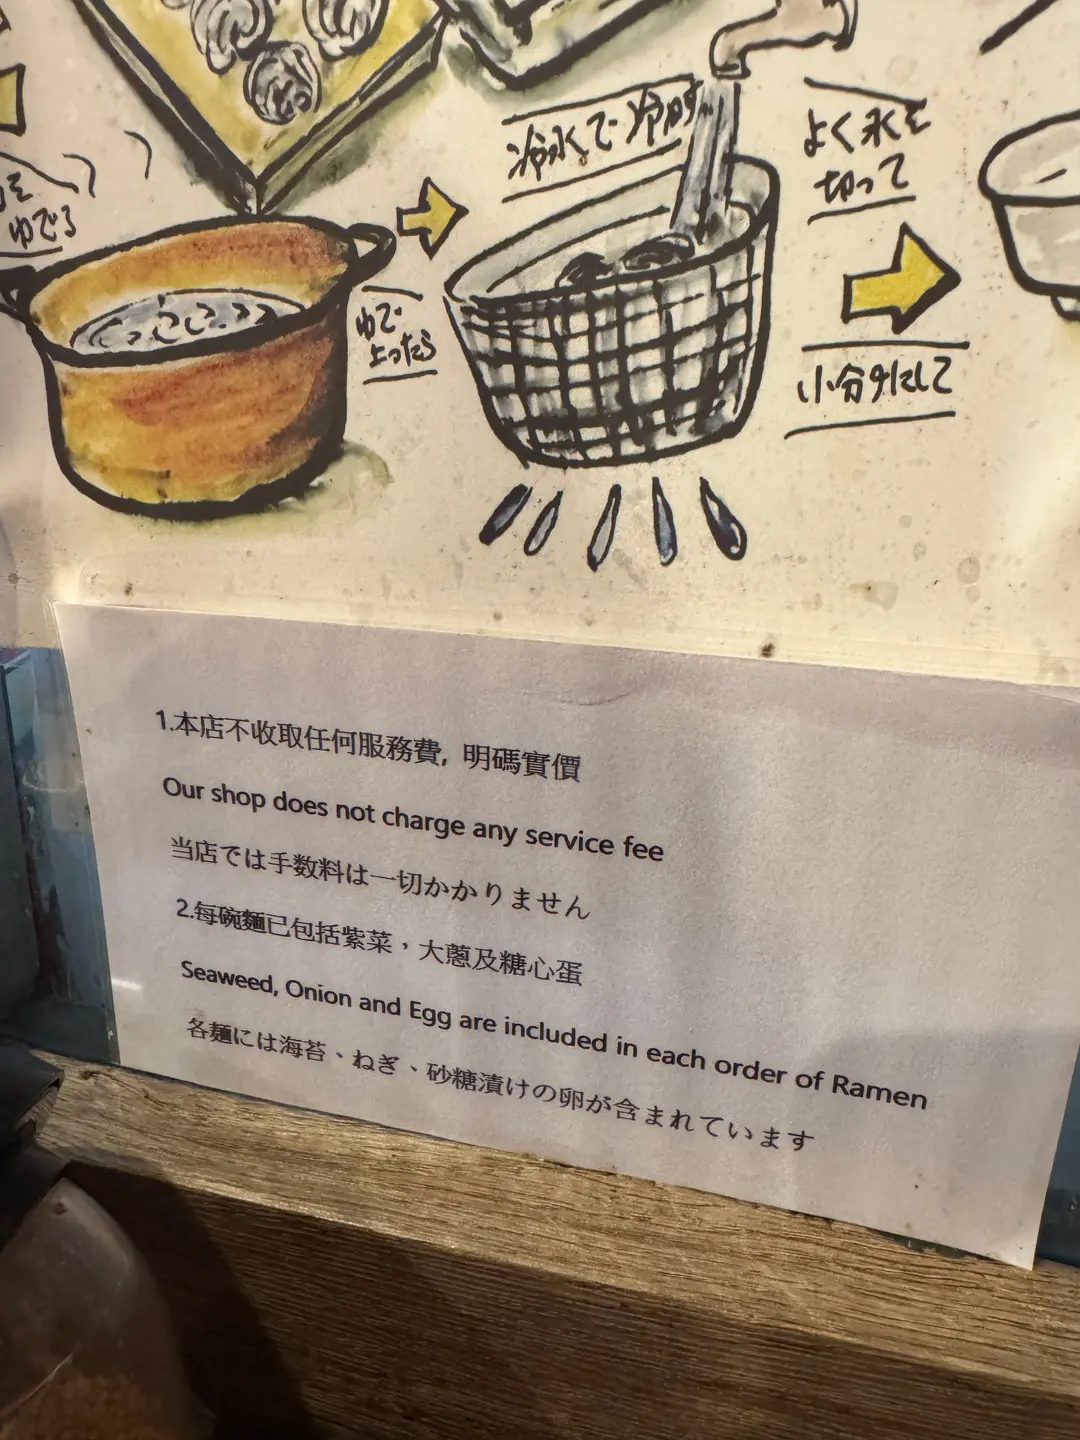 冷水で冷
よく水を
切って
ゆでる
ゆで
上ったら
小分けにして
1.本店不收取任何服務費, 明碼實價
Our shop does not charge any service fee
当店では手数料は一切かかりません
2.每碗麵已包括紫菜，大蔥及糖心蛋
Seaweed, Onion and Egg are included in each order of Ramen
各麺には海苔、ねぎ、砂糖漬けの卵が含まれています